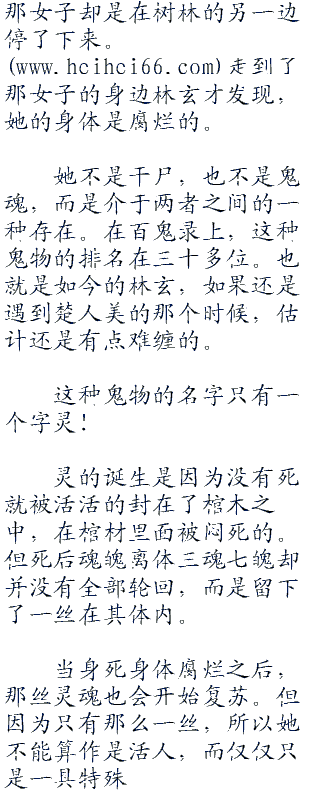 那女子却是在树林的另一边
停了下来。
(www.hcihci66.com)走到了
那女子的身边林玄才发现，
她的身体是腐烂的。
她不是干尸，也不是鬼
魂，而是介于两者之间的一
种存在。在百鬼录上，这种
鬼物的排名在三十多位。也
就是如今的林玄，如果还是
遇到楚人美的那个时候，估
计还是有点难缠的。
这种鬼物的名字只有一
个字灵！
灵的诞生是因为没有死
就被活活的封在了棺木之
中，在棺材里面被闷死的。
但死后魂魄离体三魂七魄却
并没有全部轮回，而是留下
了一丝在其体内。
当身死身体腐烂之后，
那丝灵魂也会开始复苏。但
因为只有那么一丝，所以她
不能算作是活人，而仅仅只
是一具特殊